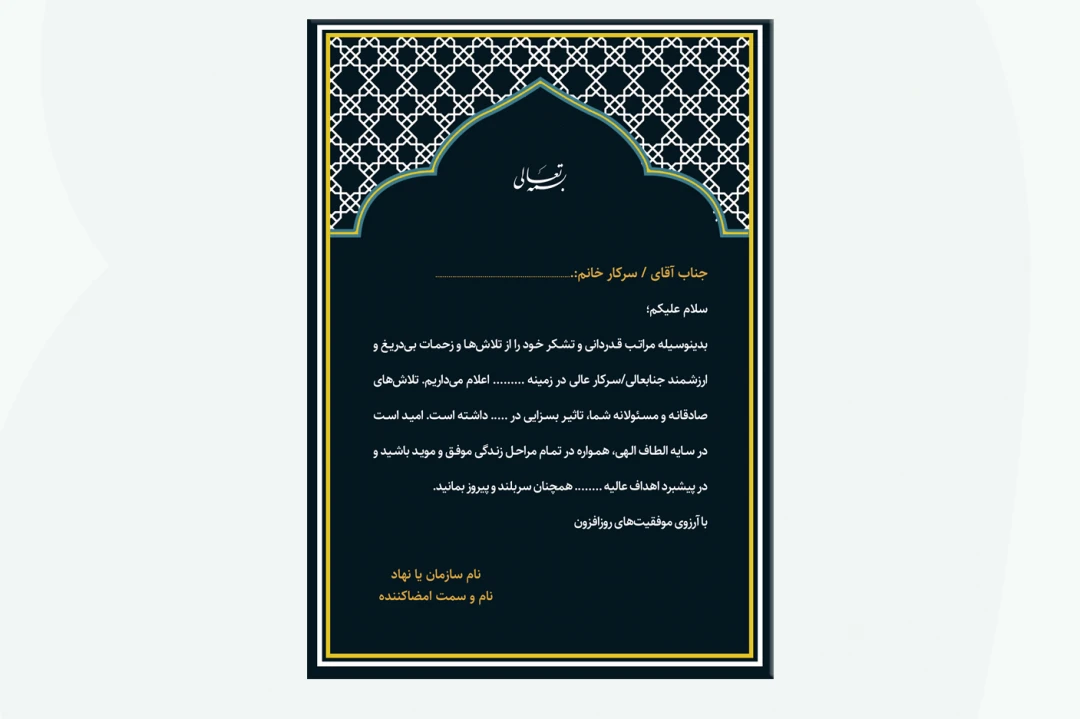 بسمه تعالی
جناب آقای / سرکار خانم:.............................................................
سلام علیکم؛
بدینوسیله مراتب قدردانی و تشکر خود را از تلاش‌ها و زحمات بی‌دریغ و
ارزشمند جنابعالی/سرکار عالی در زمینه ......... اعلام می‌داریم. تلاش‌های
صادقانه و مسئولانه شما، تاثیر بسزایی در ..... داشته است. امید است
در سایه الطاف الهی، همواره در تمام مراحل زندگی موفق و موید باشید و
در پیشبرد اهداف عالیه ........ همچنان سربلند و پیروز بمانید.
با آرزوی موفقیت‌های روزافزون
نام سازمان یا نهاد
نام و سمت امضاکننده